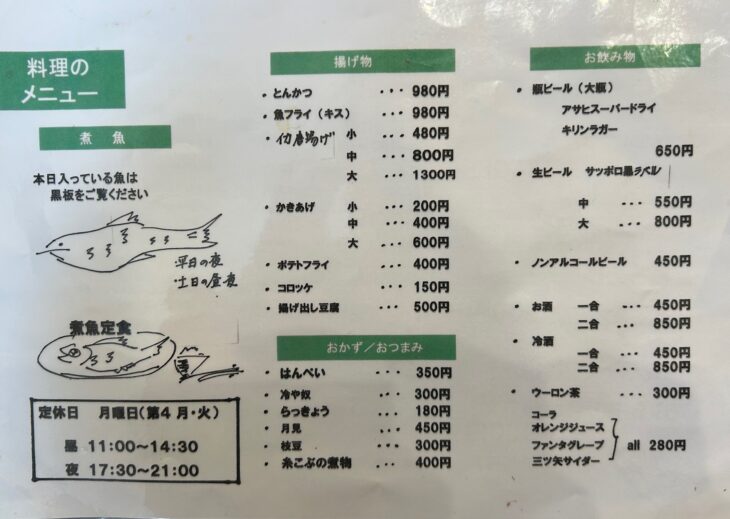 料理の
メニュー
煮 魚
本日入っている魚は
黒板をご覧ください
平日の夜
・土日の昼夜
煮魚定食
定休日 月曜日(第4月・火)
昼 11:00～14:30
夜 17:30～21:00
揚げ物
・とんかつ ・・・980円
・魚フライ(キス) ・・・980円
・イカ唐揚げ 小 ・・・480円
中 ・・・800円
大 ・・・1300円
・かきあげ 小 ・・・200円
中 ・・・400円
大 ・・・600円
・ポテトフライ ・・・400円
・コロッケ ・・・150円
・揚げ出し豆腐 ・・・500円
おかず/おつまみ
・はんぺい ・・・350円
・冷や奴 ・・・300円
・らっきょう ・・・180円
・月見 ・・・450円
・枝豆 ・・・300円
・糸こぶの煮物 ・・・400円
お飲み物
・瓶ビール(大瓶)
アサヒスーパードライ
キリンラガー
650円
・生ビール サッポロ黒ラベル
中 ・・・550円
大 ・・・800円
・ノンアルコールビール 450円
・お酒 一合 ・・・450円
二合 ・・・850円
・冷酒
一合 ・・・450円
二合 ・・・850円
・ウーロン茶 ・・・300円
コーラ
オレンジジュース
ファンタグレープ all 280円
三ツ矢サイダー